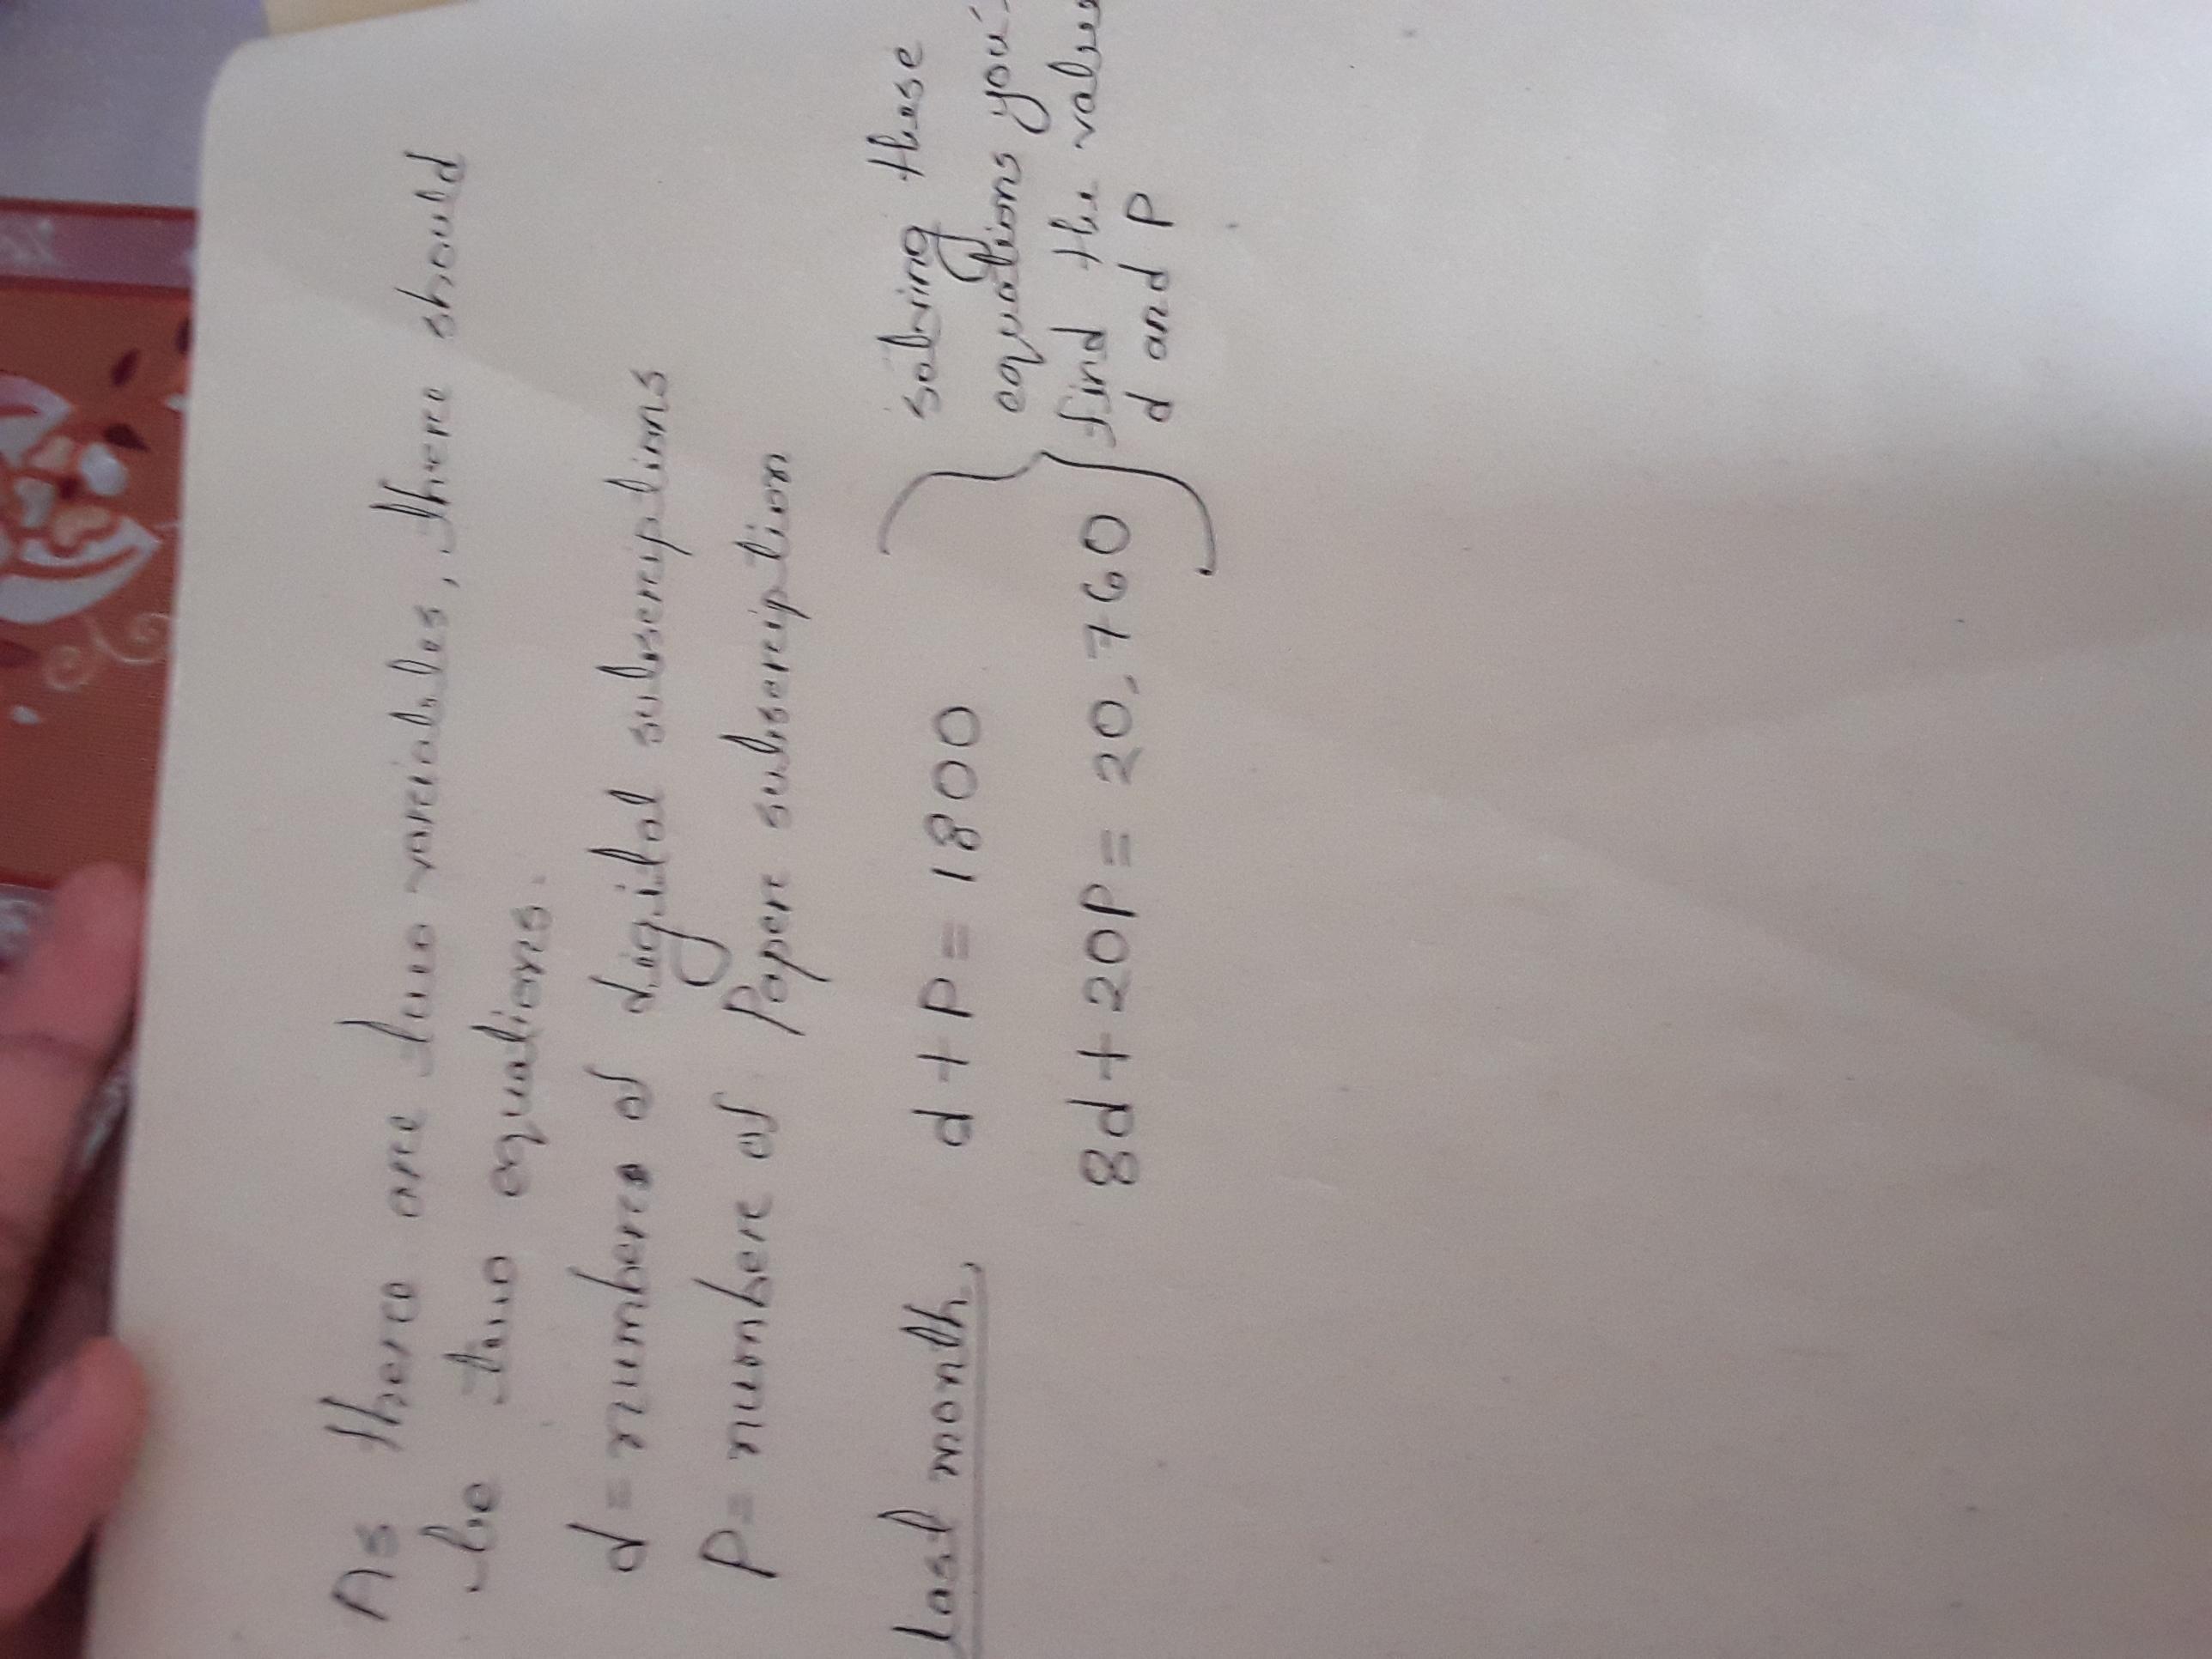 As there are two variables, there should
be two equations.
d = numbers of digital subscriptions
P = number of Paper subscription
last month, d + P = 1800
8d + 20P = 20,760
solving these
equations you
find the value
d and P